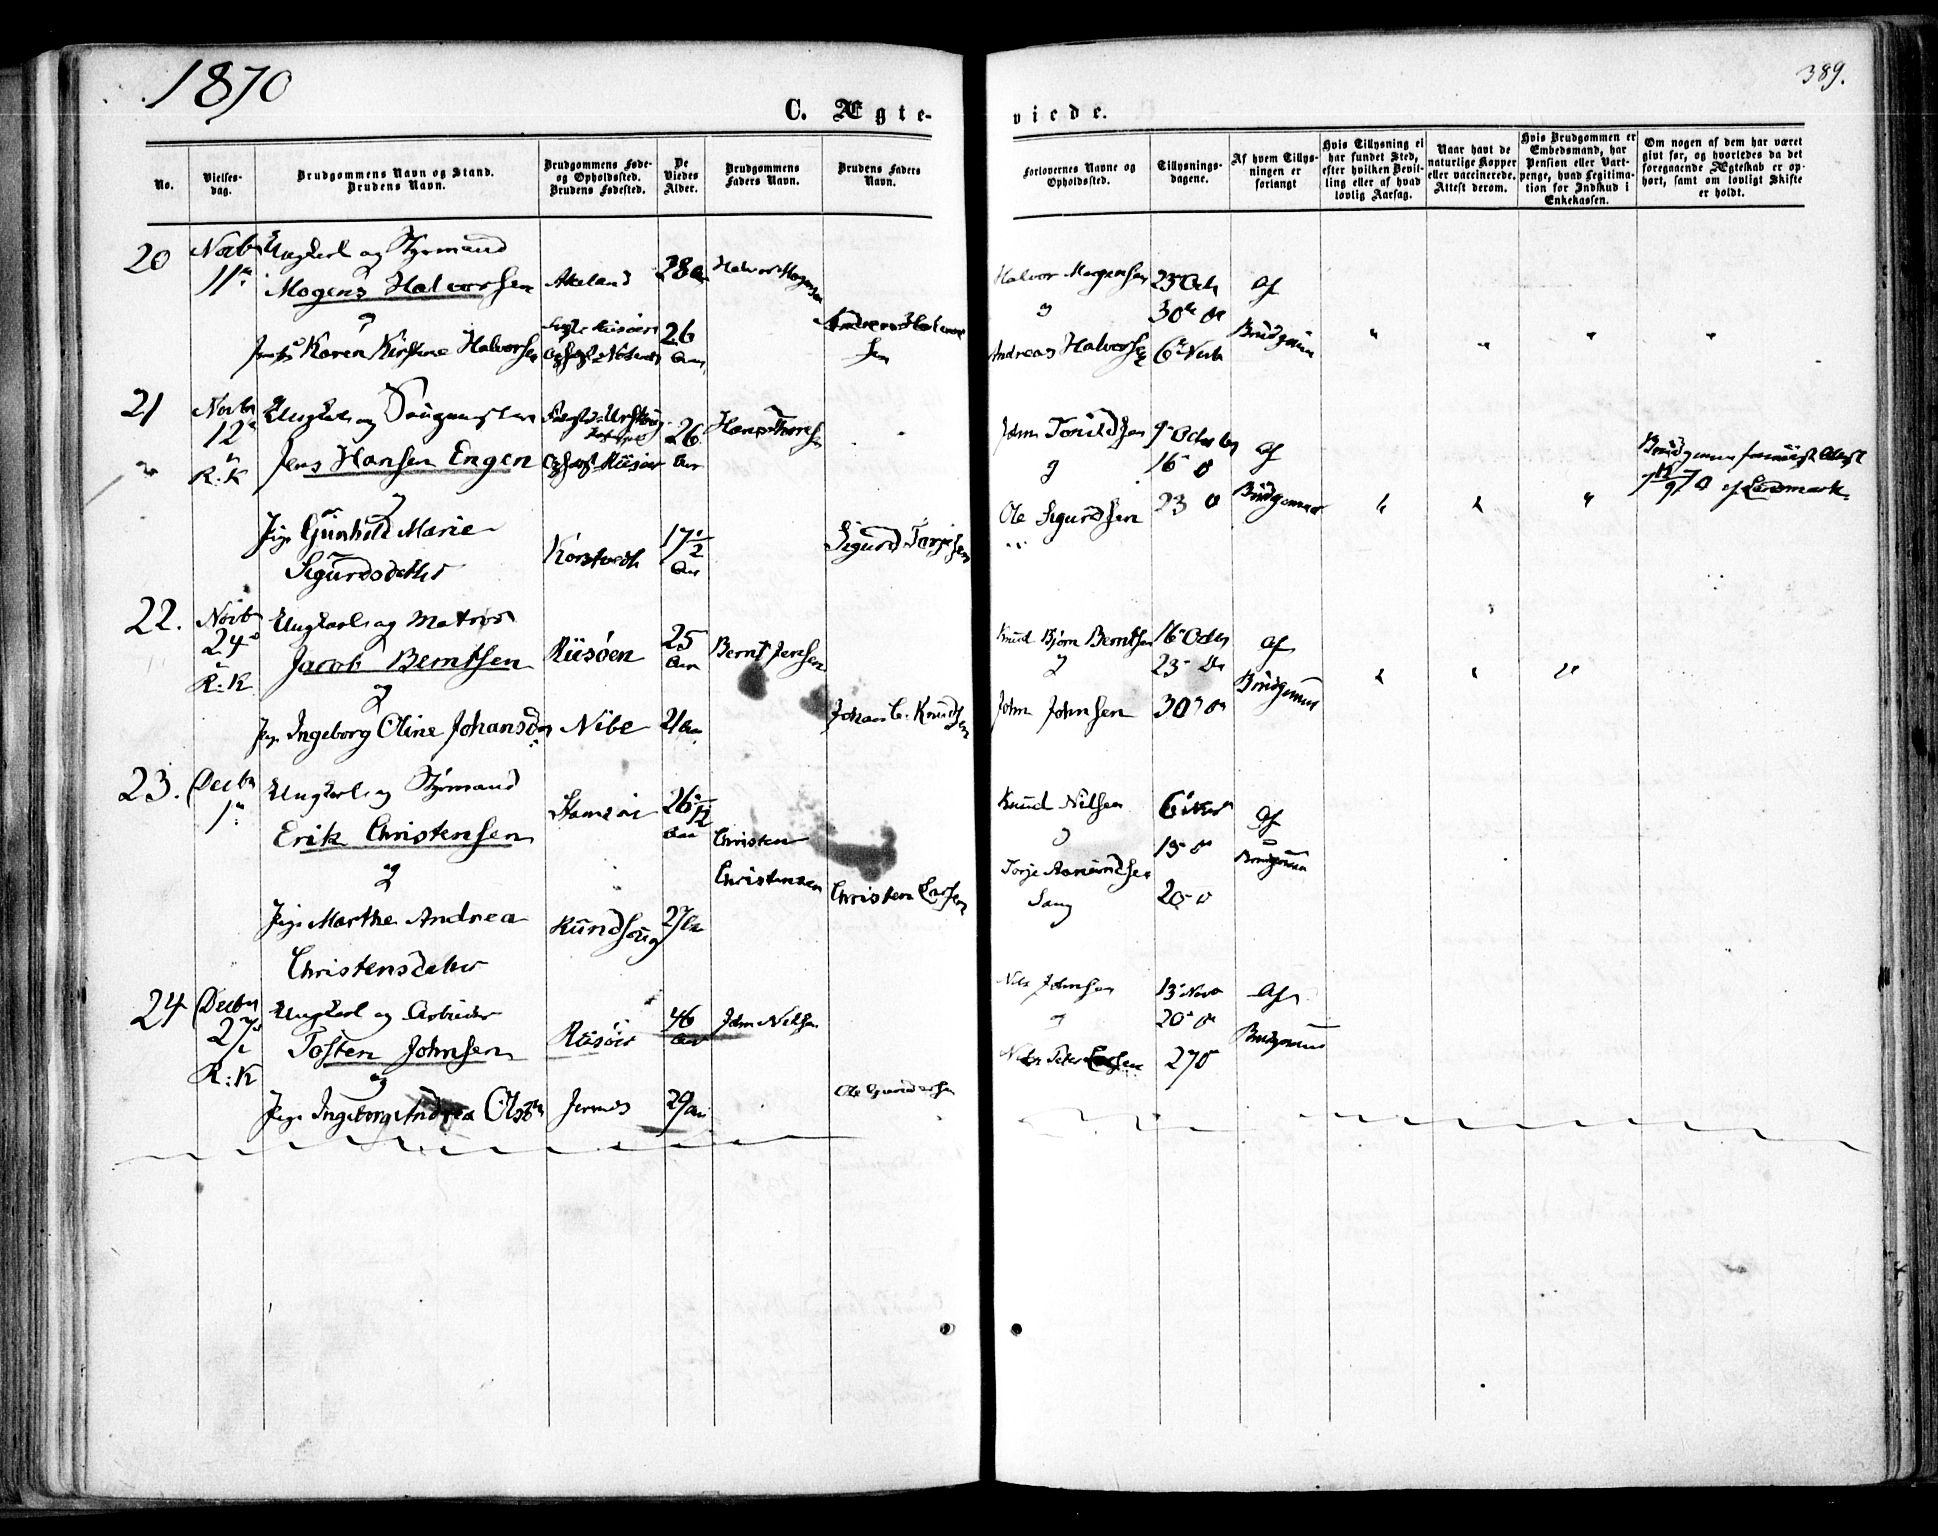 1870
389.
C. Ægte-
viede.
No.
Vielses-
dag.
Brudgommens Navn og Stand.
Brudens Navn.
Brudgommens Føde-
og Opholdssted.
Brudens Fødested.
De
Viedes
Alder.
Brudgommens
Faders Navn.
Brudens Faders
Navn.
Forlovernes Navne og
Opholdssted.
Tillysnings-
dagene.
Af hvem Tillys-
ningen er
forlangt
Hvis Tillysning ei
har fundet Sted,
efter hvilken Bevil-
ling eller af hvad
lovlig Aarsag.
Naar havt de
naturlige Kopper
eller vaccinerede.
Attest derom.
Hvis Brudgommen er
Embedsmand, har
Pension eller Vart-
penge, hvad Legitima-
tion for Indskud i
Enkekassen.
Om nogen af dem har været
givt før, og hvorledes da det
foregaaende Ægteskab er op-
hørt, samt om lovligt Skifte
er holdt.
20
Novbr
11te
Ungkarl og Styrmand
Mogens Halvorsen
og
Karen Kirstine Halvorsen
Akeland
28 Aar
26
Aar
Halvor Mogensen
Andreas Halvor
sen
Halvor Mogensen
og
Andreas Halvorsen
23 Octr
30te do
6te Novb
Af
Brudgommen
21
Novbr
12te
R:K
Ungkarl og
Jens Hansen Engen
og
Pige Gunhild Marie
Sigurdsdatter
Opholdst Riisøer
Korstvedt
26
Aar
17 1/2
Aar
Hans Thoresen
Sigurd Torjesen
John
og
Ole Sigurdsen
9 October
16 do
23 do
Af
Brudgommen
af Landmark
22.
Novbr
24de
R:K
Ungkarl og Matros
Jacob Berntsen
og
Pige Ingeborg Oline Johansd
Riisøen
Nibe
25
Aar
21 Aar
Bernt Jensen
Johan C. Knudsen
Knud Bjørn Berntsen
og
John Johnsen
16 Octr
23 do
30 do
Af
Brudgommen
23.
Decbr
1te
Ungkarl og Styrmand
Erik Christensen
og
Pige Marthe Andrea
Christensdatter
Rundsoug
27 Aar
Christen
Christensen
Christen Larsen
Knud Nilsen
og
Torje Aanundsen
Saug
13 do
20 do
Af
Brudgommen
24
Decbr
27de
R:K
Ungkarl og Arbeider
Tosten Johnsen
og
Pige Ingeborg Andrea Olsdtr
Riisøer
Jernes
46
Aar
29 Aar
John Nilsen
Ole Gundersen
Nils Johnsen
og
13 Novr
20 do
27 do
Af
Brudgommen